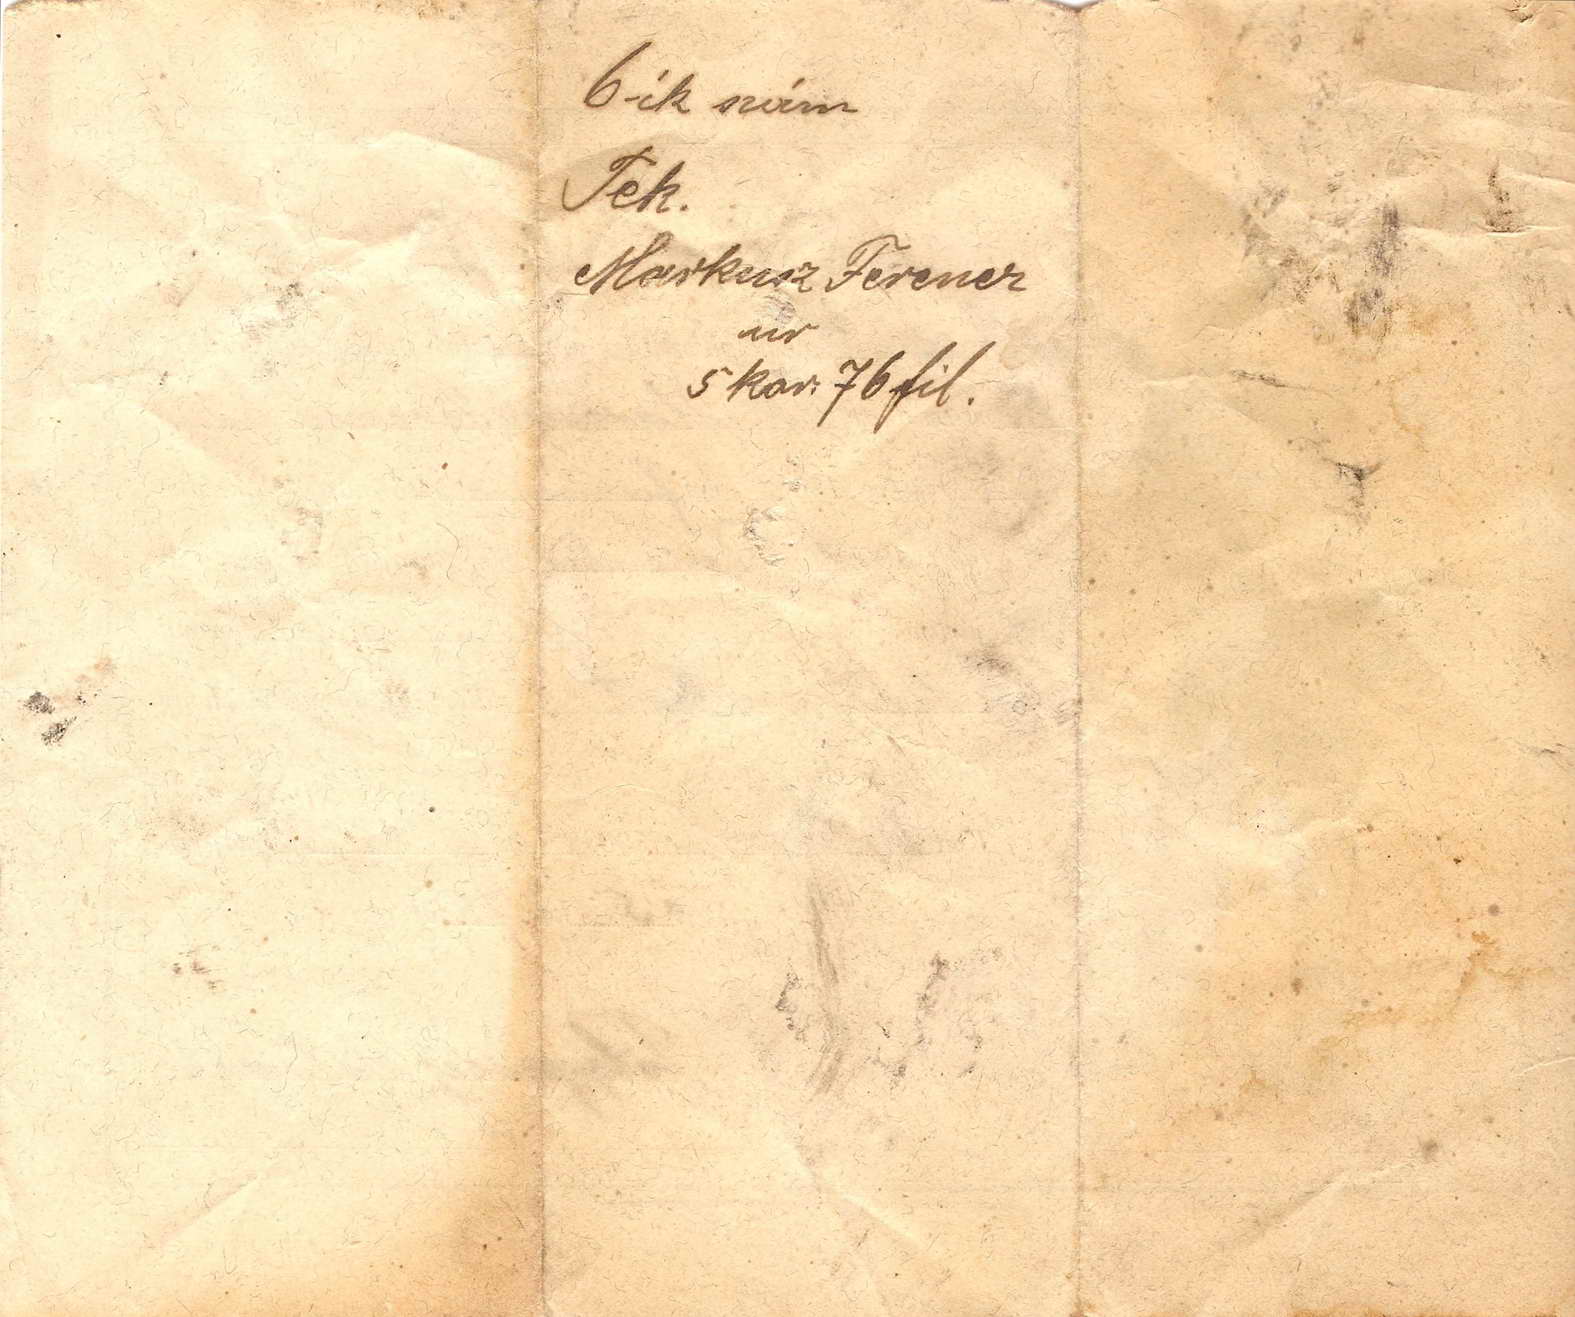 6-ik szám
Tek.
Markusz Ferencz
úr
5 kor. 76 fil.